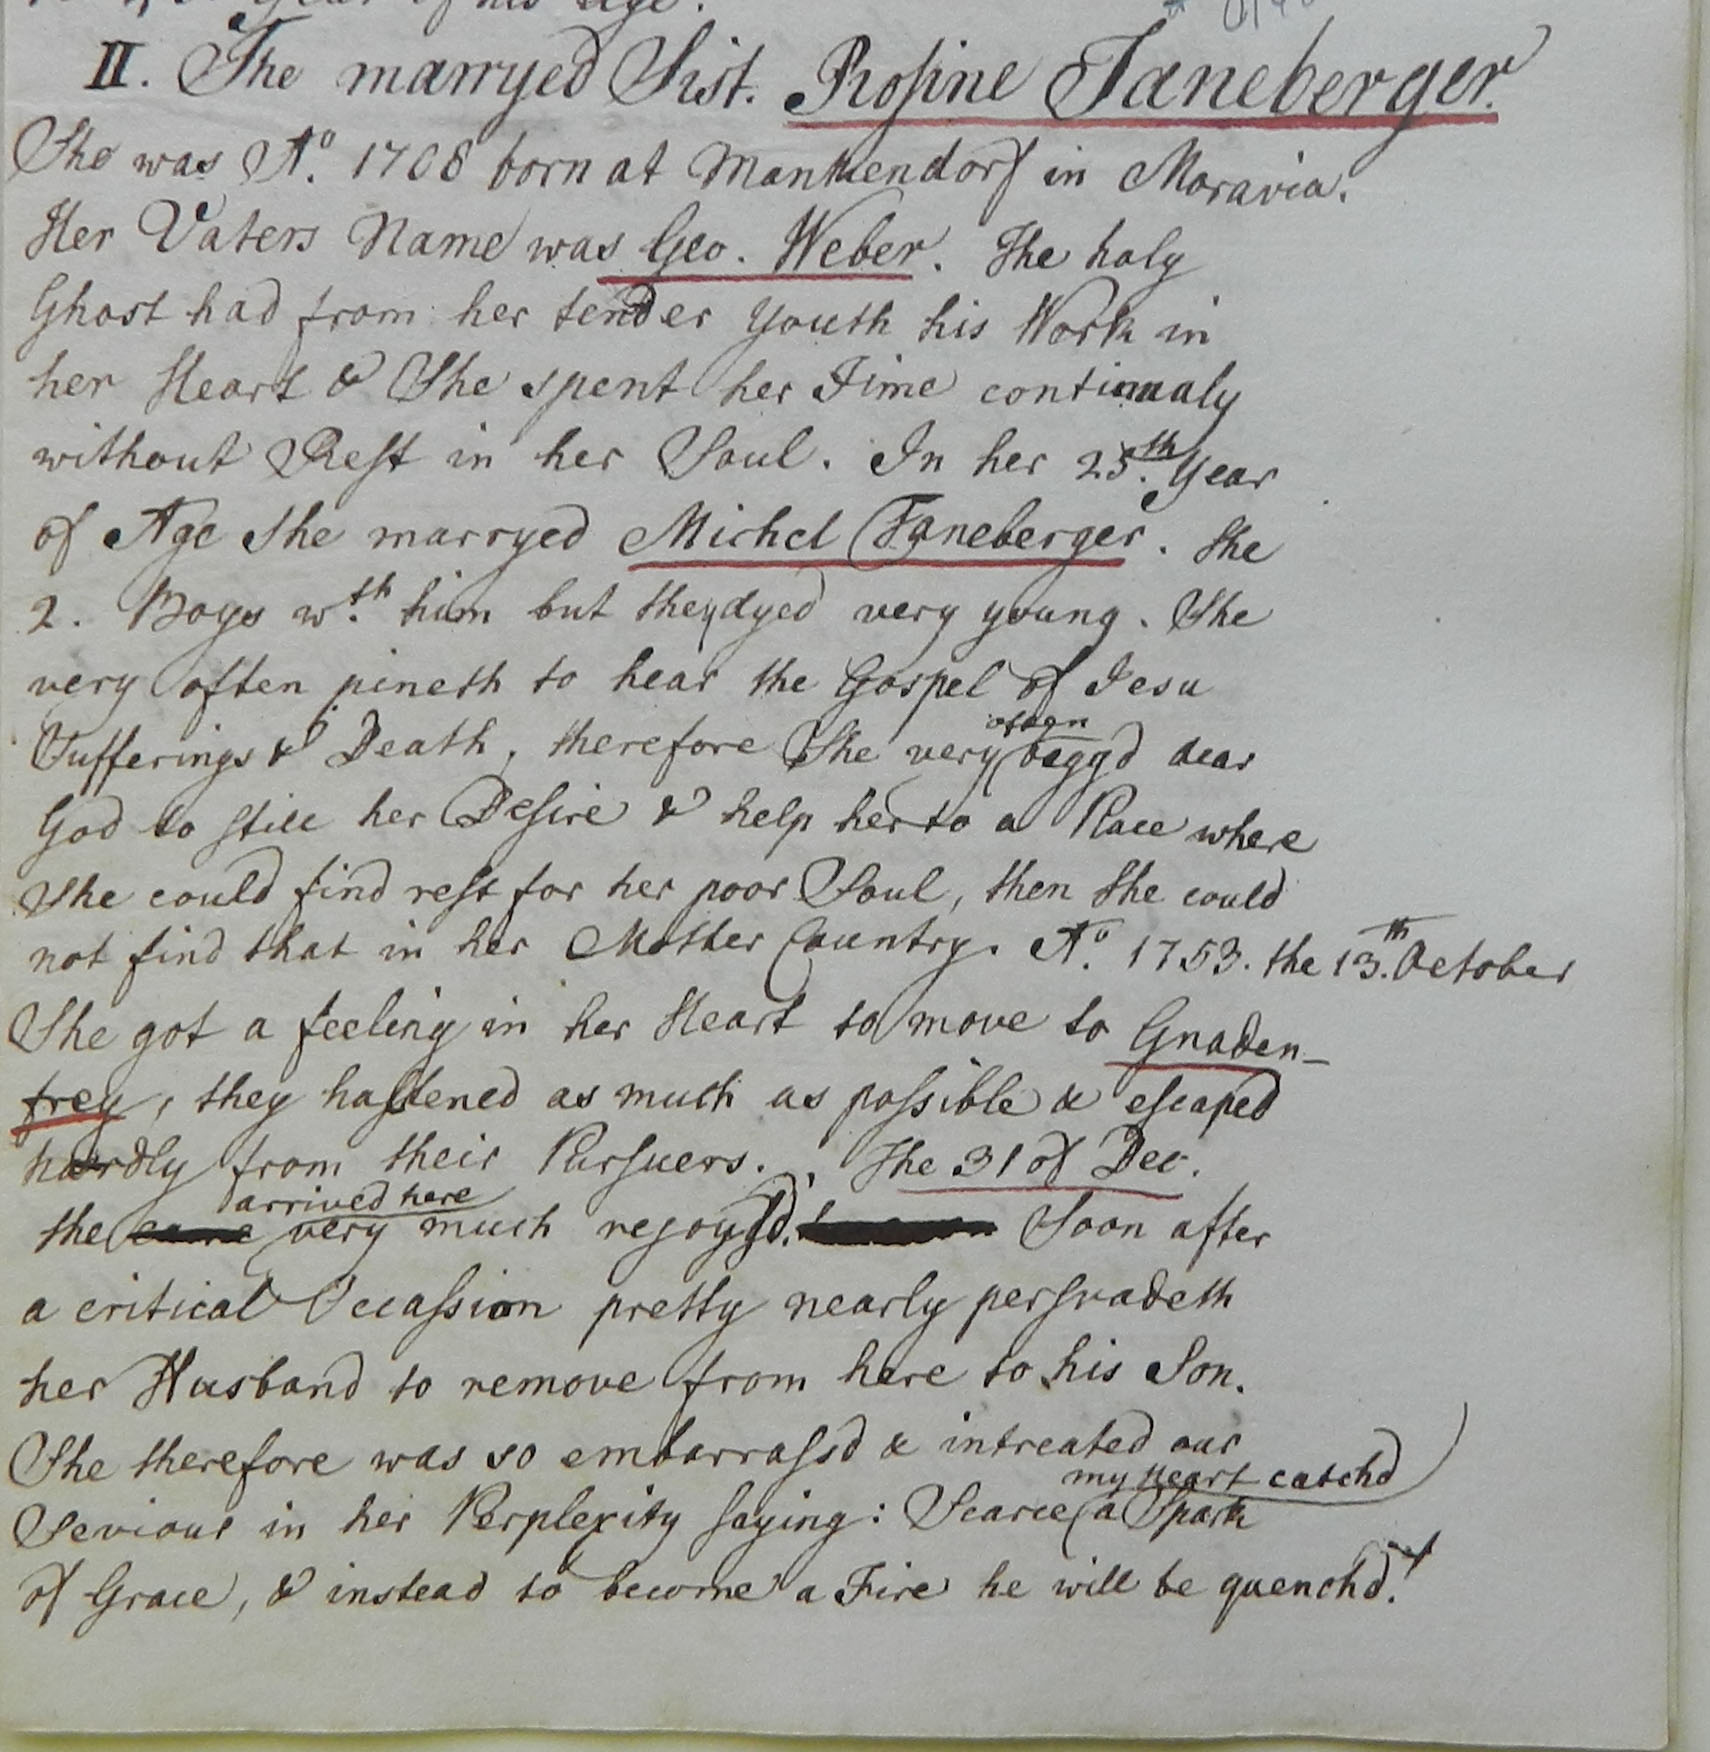 Year of his Age.
II. The marryed Sist. Rosine Janeberger.
She was Ao. 1708 born at Mankendorf in Moravia.
Her Vaters Name was Geo. Weber. The holy
Ghost had from her tender Youth his Work in
her Heart & She spent her Time continualy
without Rest in her Soul. In her 25th. Year
of Age She marryed Michel Janeberger. She
2. Boys wth. him but they dyed very young. She
very often pineth to hear the Gospel of Jesu
Sufferings & Death, therefore She very often beggd dear
God to still her Desire & help her to a Place where
She could find rest for her poor Soul, then She could
not find that in her Mother Country. Ao. 1753. the 13th. October
She got a feeling in her Heart to move to Gnaden-
frey, they hastened as much as possible & escaped
hardly from their Pursuers. The 31 of Dec.
the arrived here very much rejoysd. Soon after
a critical Occassion pretty nearly persvadeth
her Husband to remove from here to his Son.
She therefore was so embarrassd & intreated our
Seviour in her Perplexity saying: Scarce my Heart catchd a Spark
of Grace, & instead to become a Fire he will be quenchd!